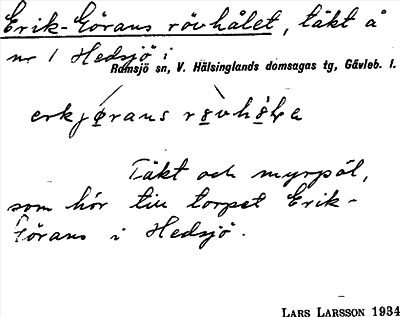 Erik-Görans rövhålet, täkt å
nr 1 Hedsjö i
Ramsjö sn, V. Hälsinglands domsagas tg, Gävleb. l.
Täkt och myrpöl,
som hör till torpet Erik-
Görans i Hedsjö.
LARS LARSSON 1934